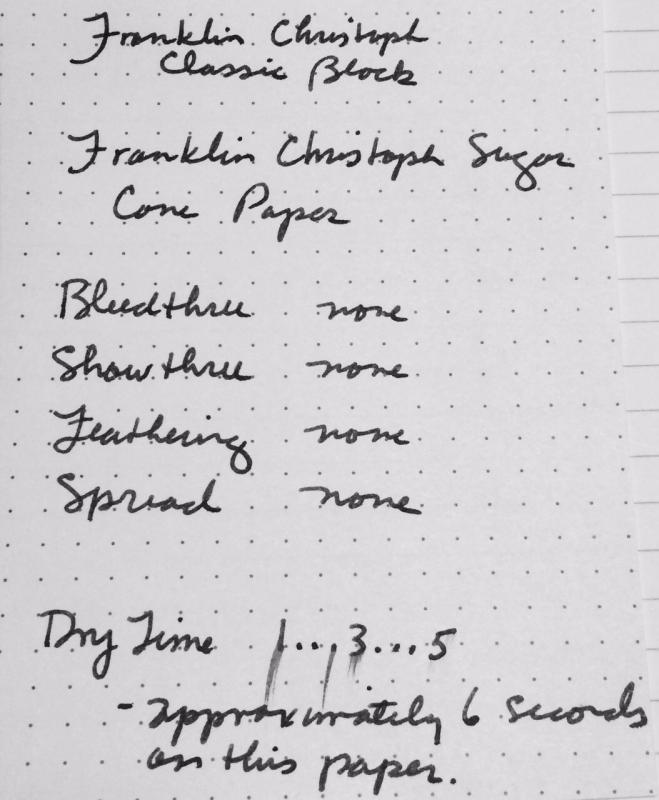 Franklin Christoph
Classic Block
Franklin Christoph Sugar
Cane Paper
Bleedthru none
Showthru none
Feathering none
Spread none
Dry Time 1...3...5
- approximately 6 seconds
on this paper.